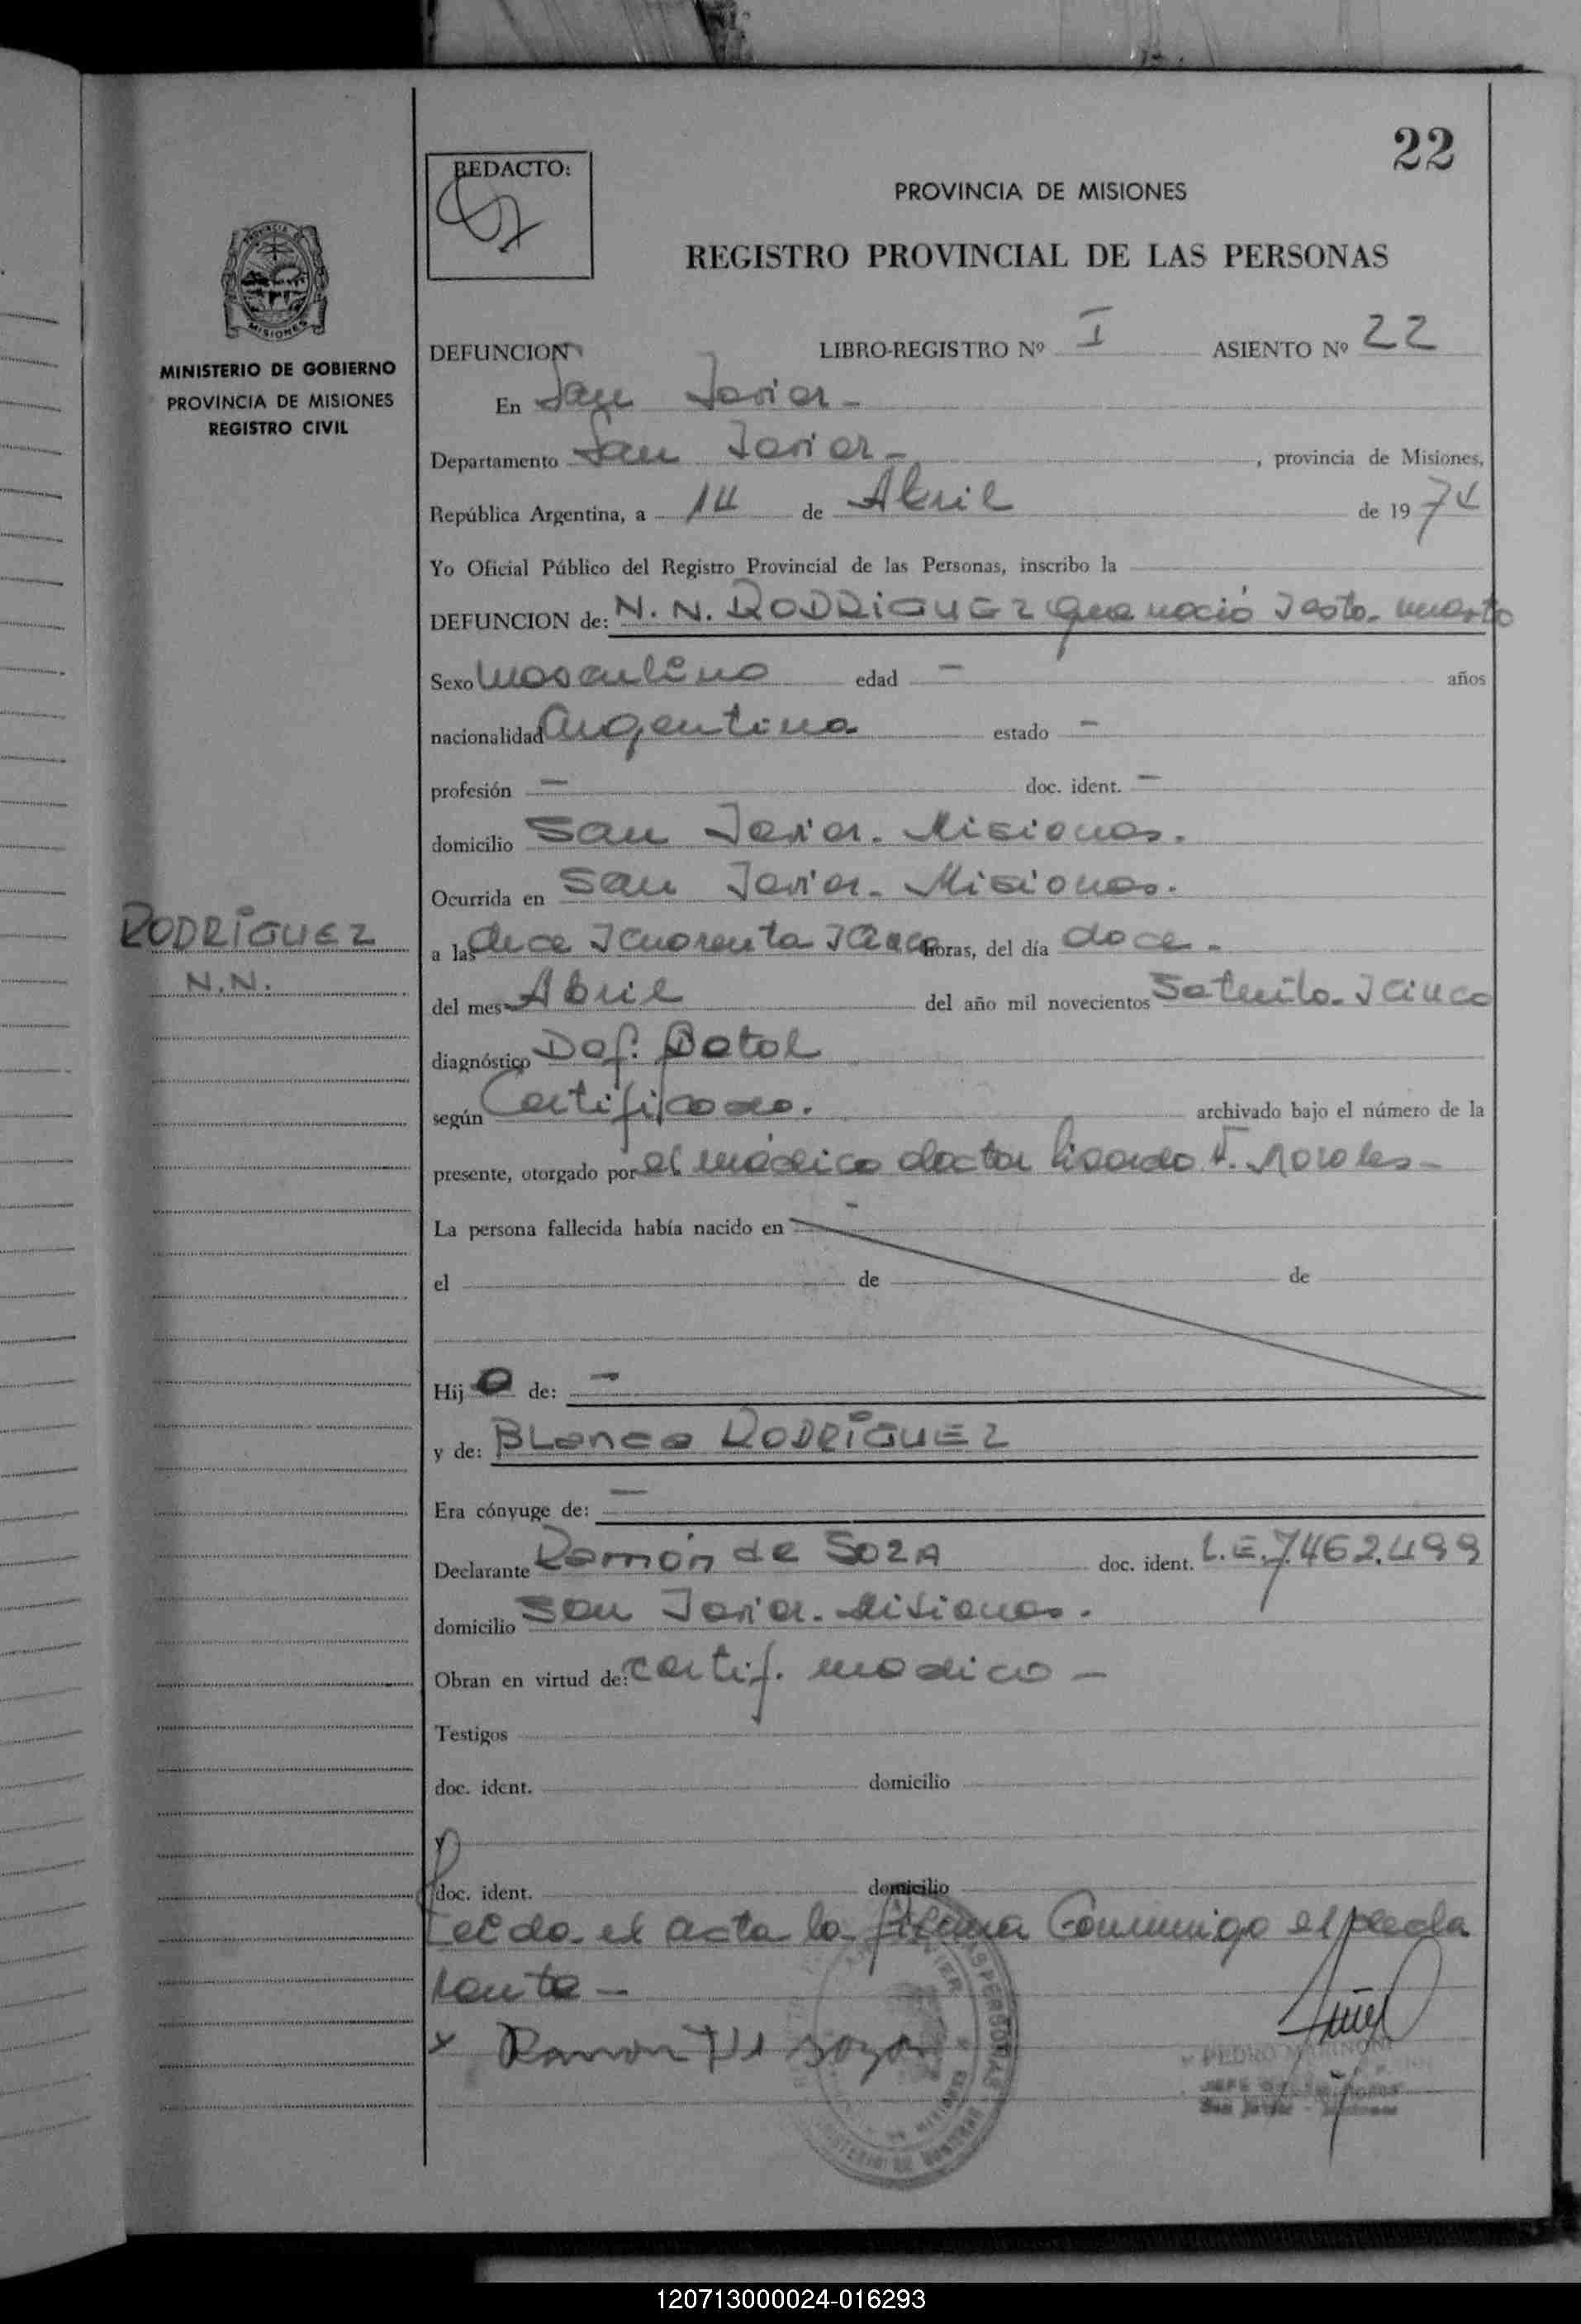 22
REDACTO:
PROVINCIA DE MISIONES
REGISTRO PROVINCIAL DE LAS PERSONAS
MISIONES
MINISTERIO DE GOBIERNO
PROVINCIA DE MISIONES
REGISTRO CIVIL
DEFUNCION LIBRO-REGISTRO Nº I ASIENTO Nº 22
En San Javier -
Departamento San Javier - , provincia de Misiones,
República Argentina, a 14 de Abril de 19
Yo Oficial Público del Registro Provincial de las Personas, inscribo la
DEFUNCION de: N. N. RODRIGUEZ que nació muerto
Sexo masculino edad - años
nacionalidad argentina estado -
profesión - doc. ident. -
domicilio San Javier - Misiones.
Ocurrida en San Javier - Misiones.
RODRÍGUEZ
N.N.
a las y cuarenta y cinco horas, del día doce -
del mes Abril del año mil novecientos Setenta y cinco
diagnóstico Def. Fetal
según Certificado. archivado bajo el número de la
presente, otorgado por el médico doctor F. Morales -
La persona fallecida había nacido en -
el de de
Hij o de: -
y de: BLanca RODRÍGUEZ
Era cónyuge de: -
Declarante Ramón de SOZA doc. ident. L.E. 7.462.499
domicilio San Javier - Misiones.
Obran en virtud de: certif. medico -
Testigos
doc. ident. domicilio
y
doc. ident. domicilio
Leida el acta la firma Conmigo el decla
rante -
x Ramon De soza
PEDRO MARINONI
120713000024-016293